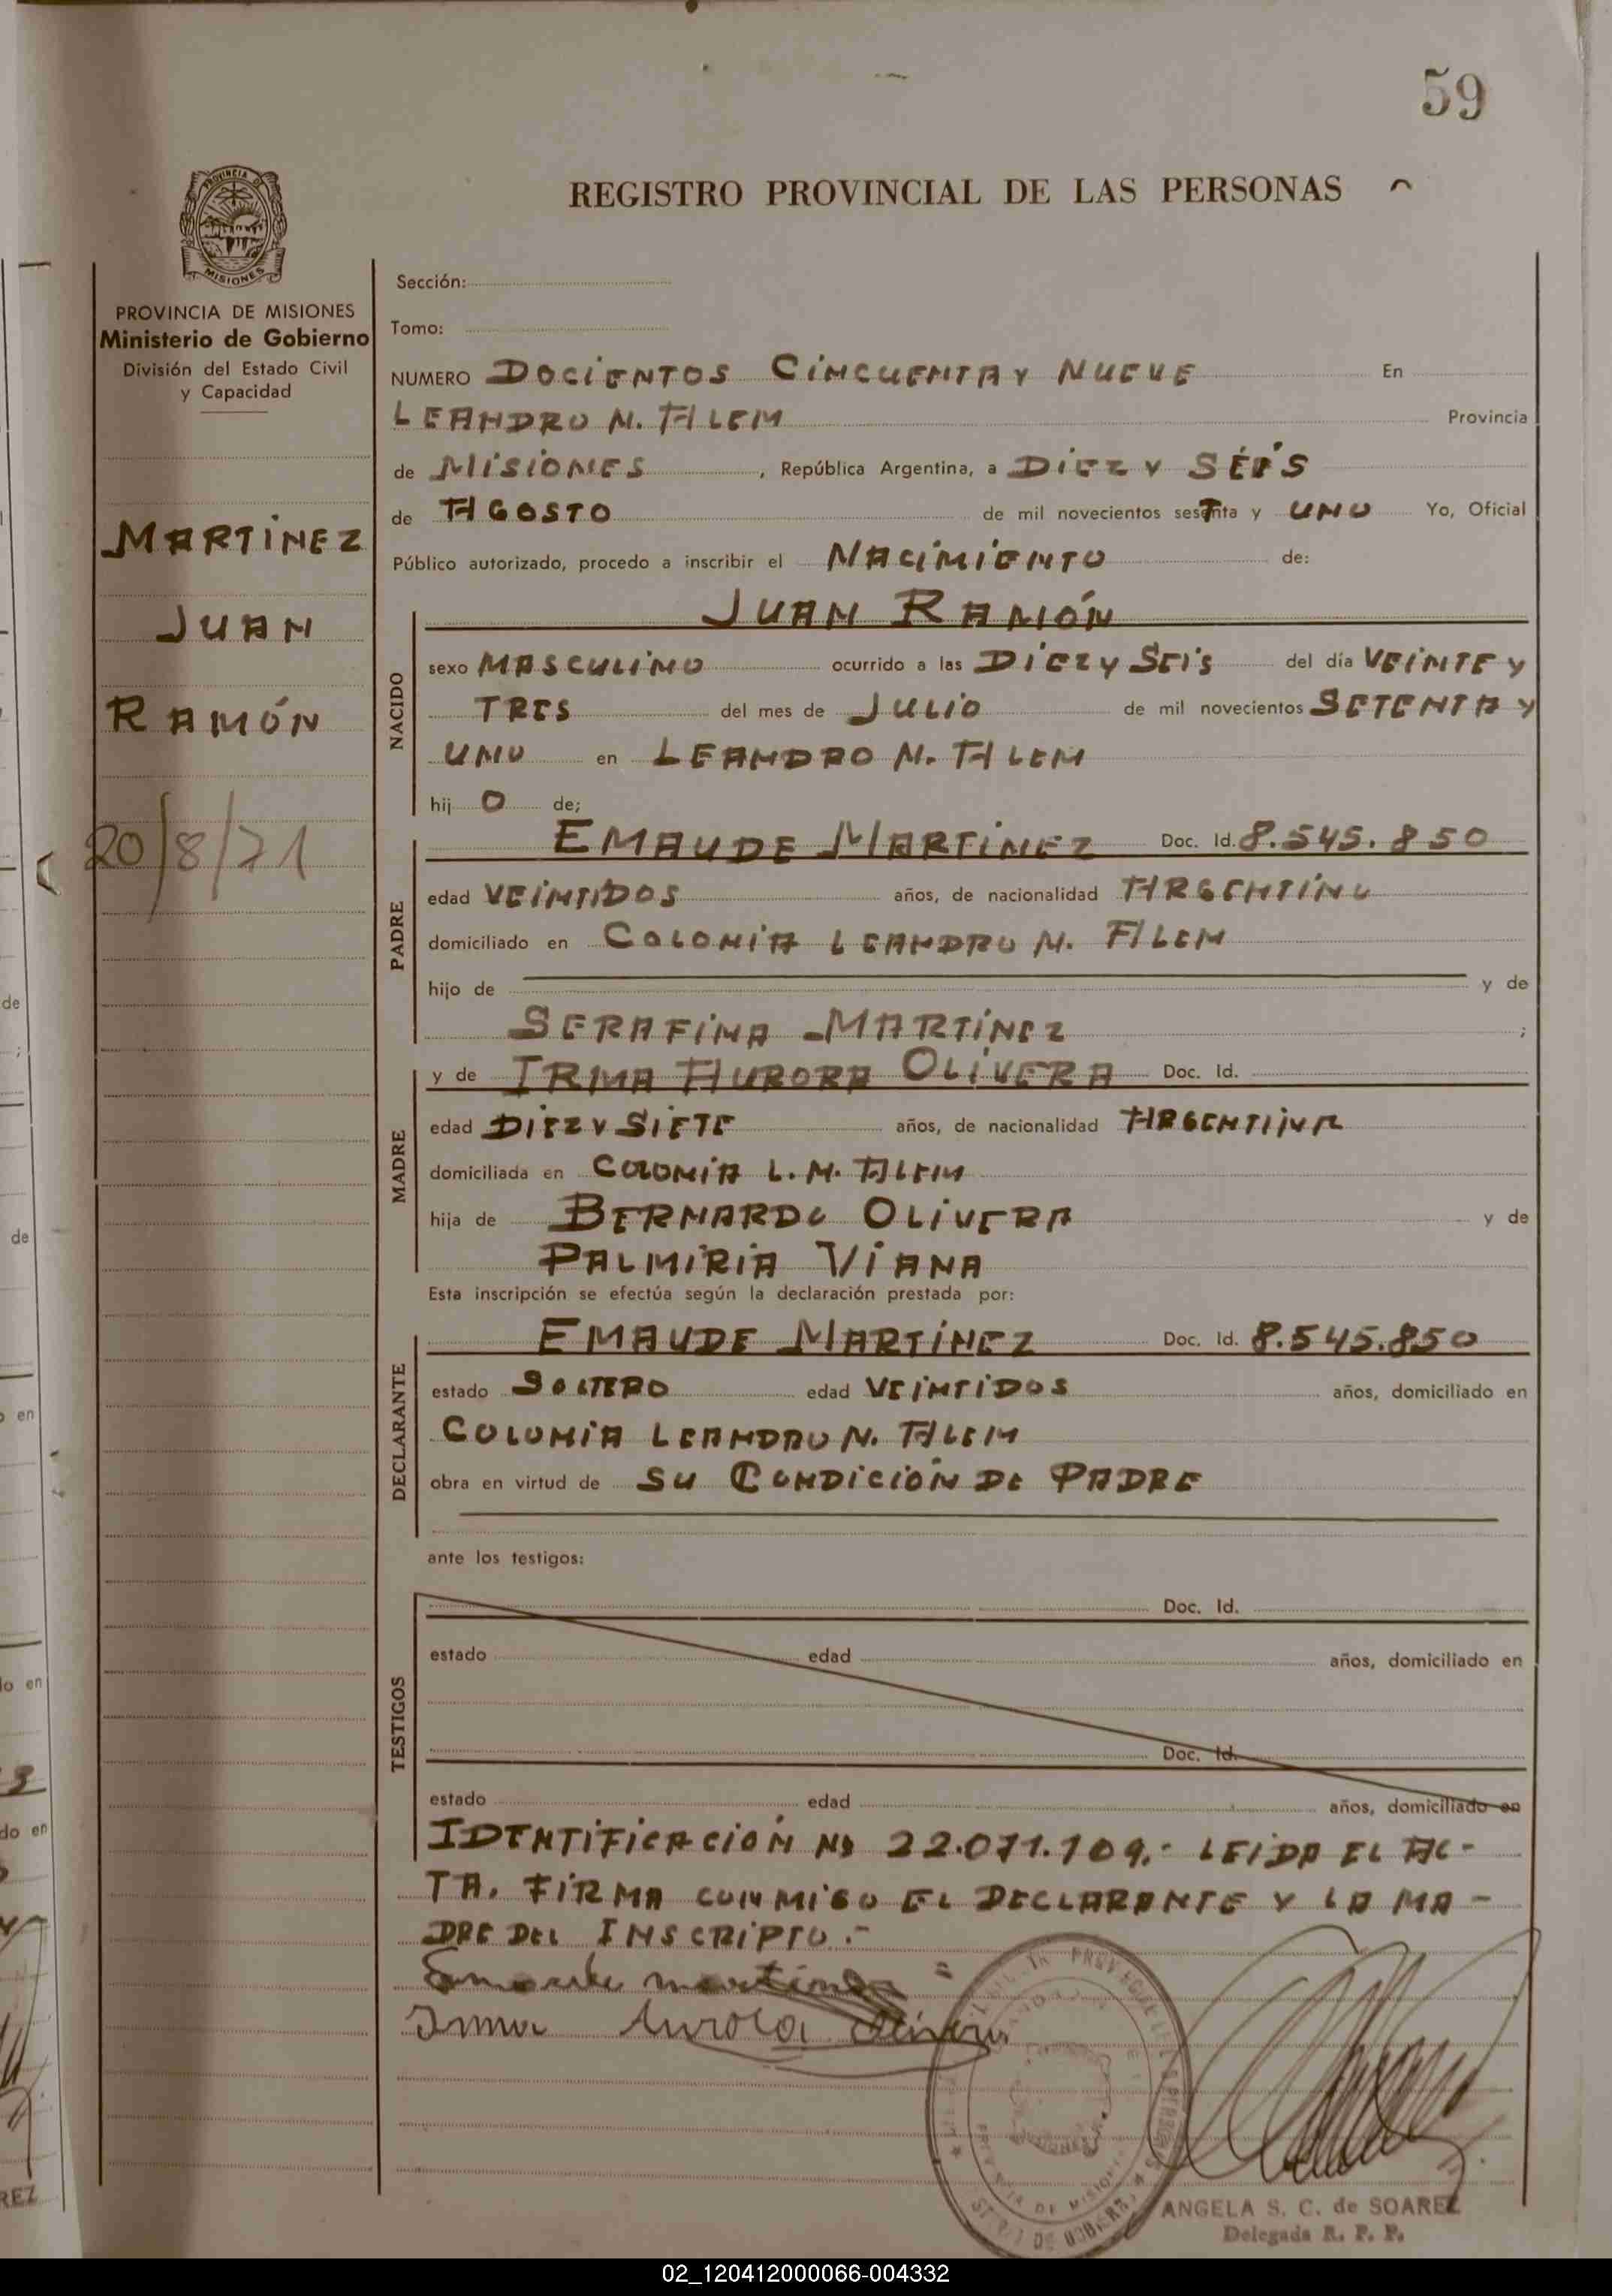 59
REGISTRO PROVINCIAL DE LAS PERSONAS
PROVINCIA DE
MISIONES
PROVINCIA DE MISIONES
Ministerio de Gobierno
División del Estado Civil
y Capacidad
MARTÍNEZ
JUAN
RAMÓN
20/8/71
Sección:
Tomo:
NUMERO DOCIENTOS CINCUENTA Y NUEVE En
LEANDRO N. ALEM Provincia
de MISIONES, República Argentina, a DIEZ Y SÉIS
de AGOSTO de mil novecientos sesTnta y UNO Yo, Oficial
Público autorizado, procedo a inscribir el NACIMIENTO de:
NACIDO
JUAN RAMÓN
sexo MASCULINO ocurrido a las DIEZ y SEIS del día VEINTE y
TRES del mes de JULIO de mil novecientos SETENTA y
UNO en LEANDRO N. ALEM
hij O de;
PADRE
EMAUDE MARTÍNEZ Doc. Id. 8.545.850
edad VEINTIDOS años, de nacionalidad ARGENTINO
domiciliado en COLONIA LEANDRO N. ALEM
hijo de y de
SERAFINA MARTÍNEZ ;
MADRE
y de IRMA AURORA OLIVERA Doc. Id.
edad DIEZ y SIETE años, de nacionalidad ARGENTINA
domiciliada en COLONIA L. N. ALEM
hija de BERNARDO OLIVERA y de
PALMIRIA VIANA
Esta inscripción se efectúa según la declaración prestada por:
DECLARANTE
EMAUDE MARTÍNEZ Doc. Id. 8.545.850
estado SOLTERO edad VEINTIDOS años, domiciliado en
COLONIA LEANDRO N. ALEM
obra en virtud de SU CONDICIÓN DE PADRE
ante los testigos:
TESTIGOS
Doc. Id.
estado edad años, domiciliado en
Doc. Id.
estado edad años, domiciliado en
IDENTIFICACIÓN No 22.071.109.- LEIDA EL AC-
TA. FIRMA CONMIGO EL DECLARANTE Y LA MA-
DRE DEL INSCRIPTO.-
Emaude martinez
Irma Aurora Olivera
ANGELA S. C. de SOAREZ
Delegada R. P. P.
02_120412000066-004332